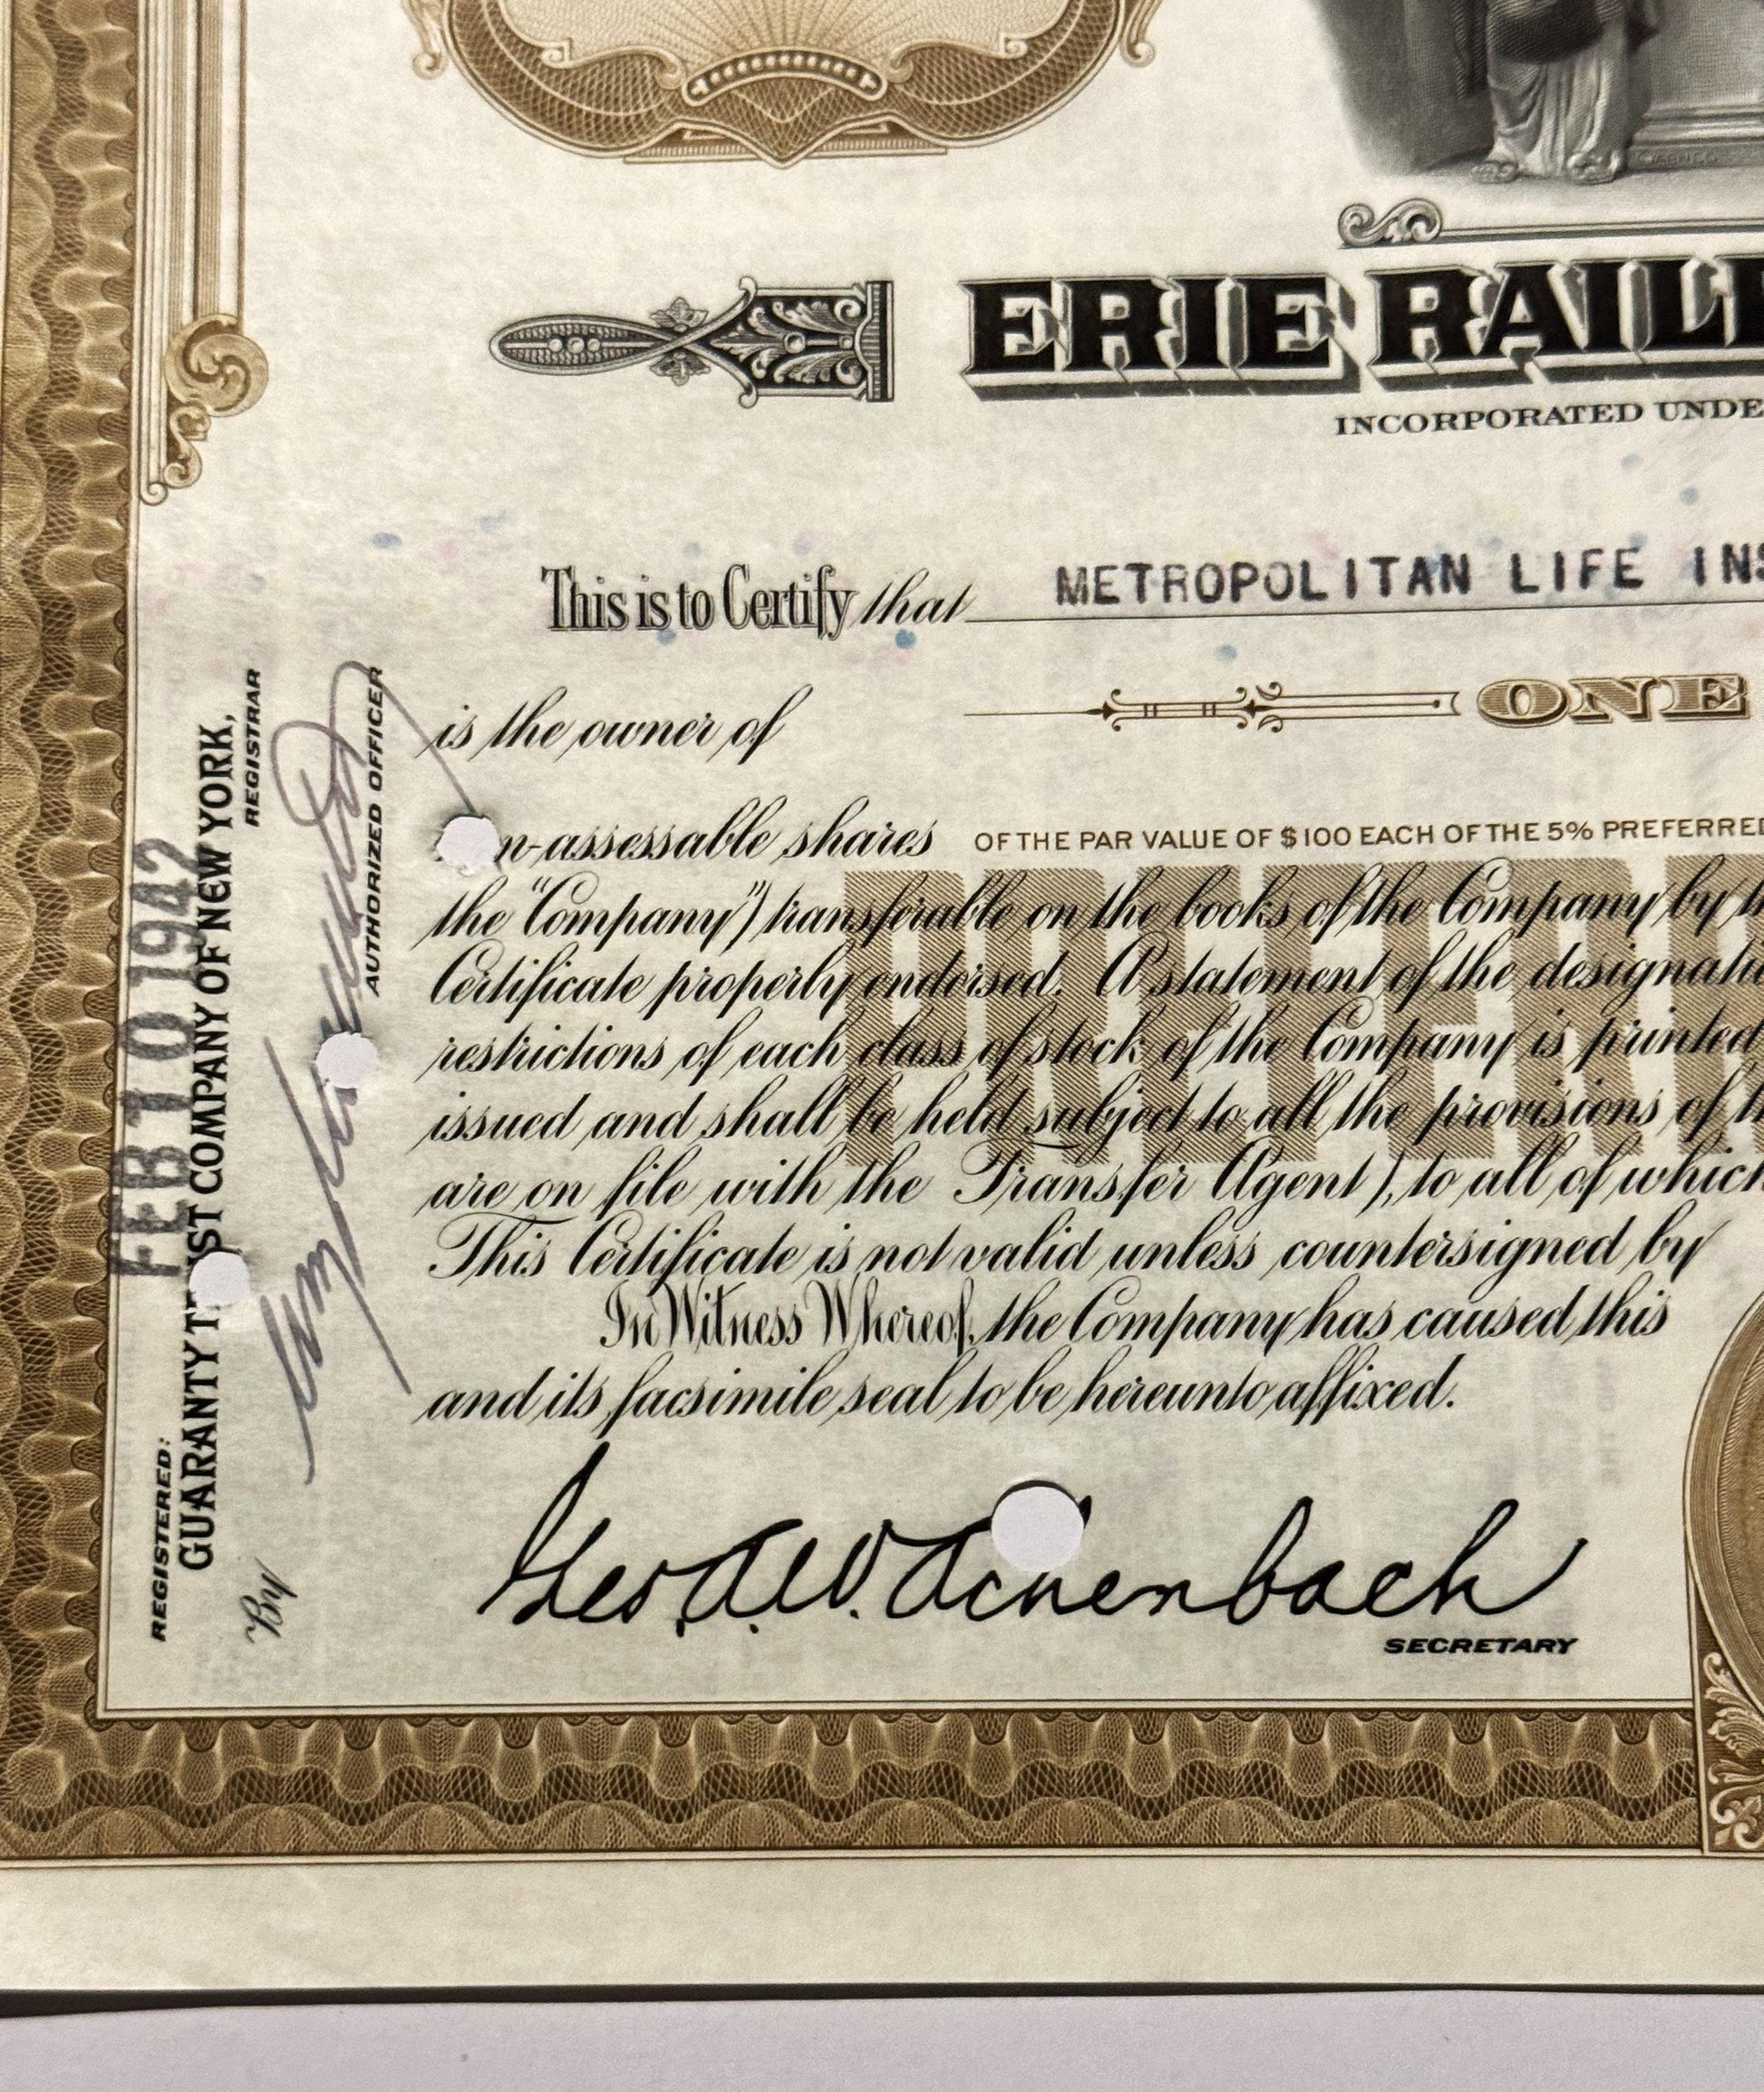 ERIE RAIL
INCORPORATED UNDE
This is to Certify that METROPOLITAN LIFE INS
is the owner of ONE
n-assessable shares OF THE PAR VALUE OF $100 EACH OF THE 5% PREFERRED
the "Company") transferable on the books of the Company by
Certificate properly endorsed. A statement of the designati
restrictions of each class of stock of the Company is printed
issued and shall be held subject to all the provisions of
are on file with the Transfer Agent), to all of which
This Certificate is not valid unless countersigned by
In Witness Whereof, the Company has caused this
and its facsimile seal to be hereunto affixed.
Geo. A. W. Achenbach
SECRETARY
PREFERR
FEB 10 1942
REGISTERED:
GUARANTY T ST COMPANY OF NEW YORK,
REGISTRAR
By
AUTHORIZED OFFICER